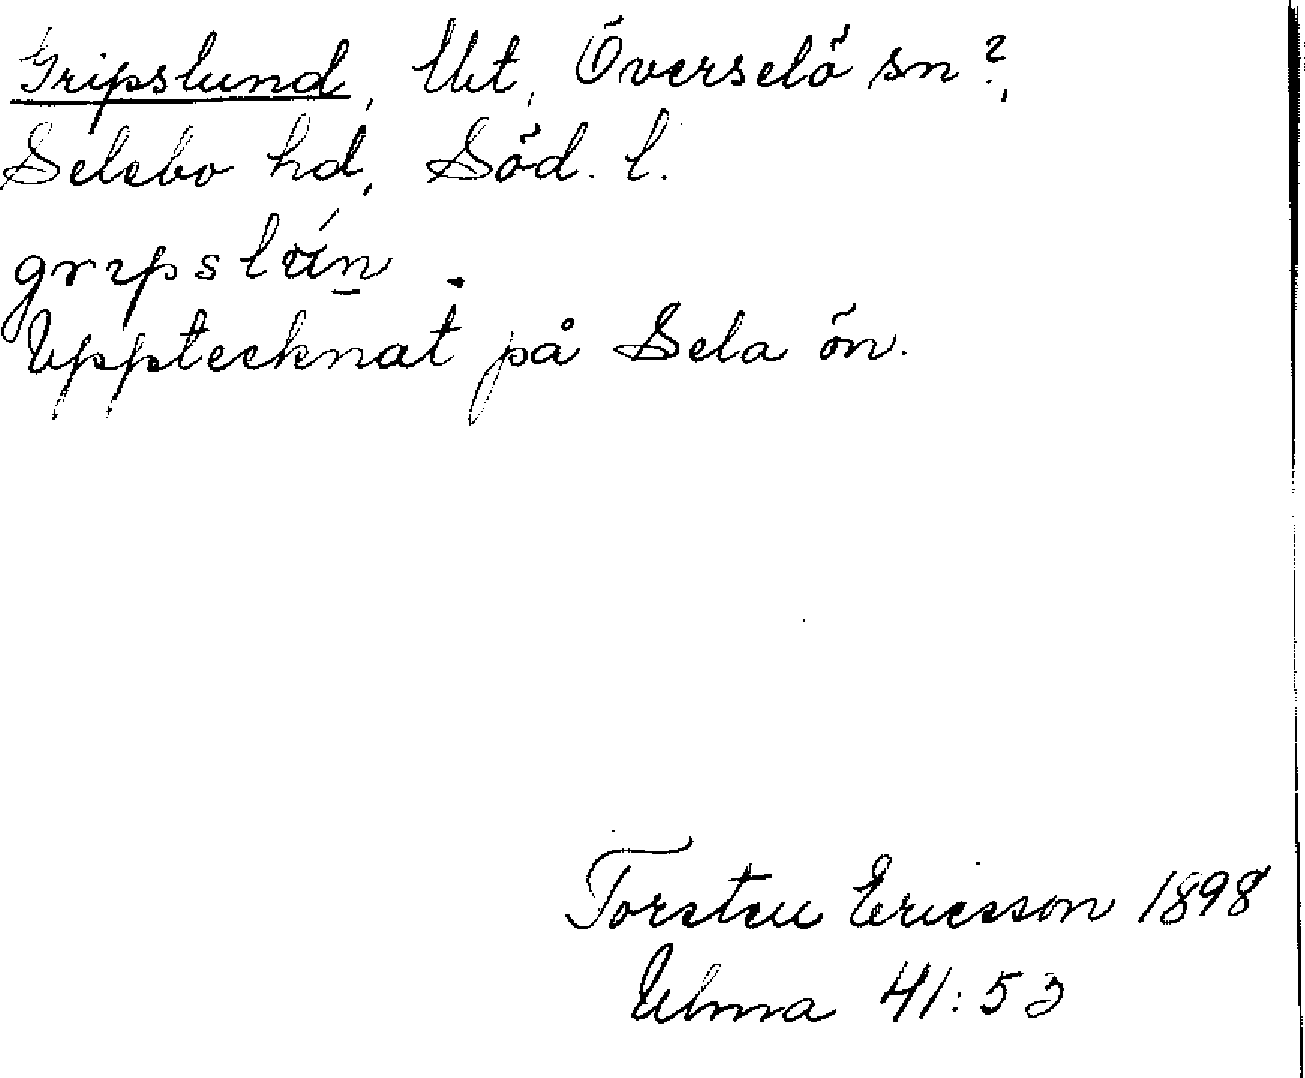 Gripslund, Ukt, Överselö sn?,
Selebo hd, Söd. l.
gripslún.
Upptecknat på Sela ön.
Torsten Ericsson 1898
Ulma 41:53